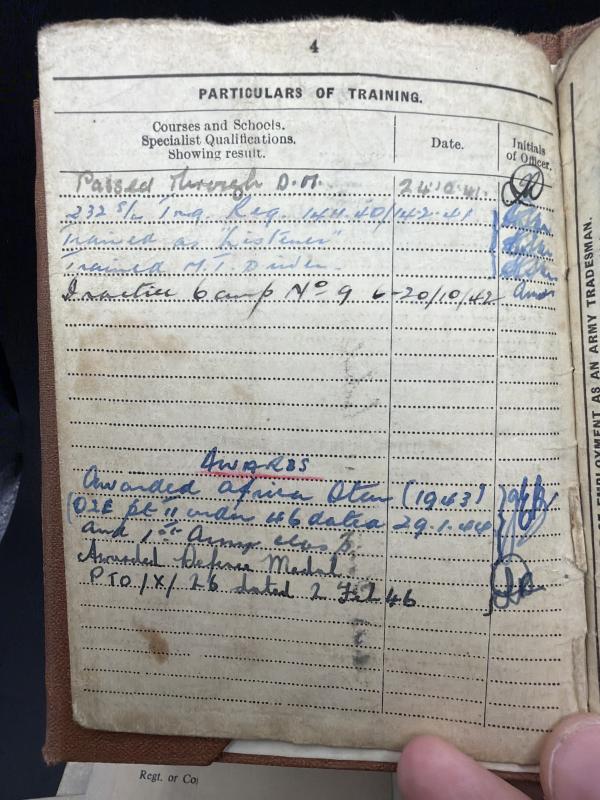 4
PARTICULARS OF TRAINING.
Courses and Schools.
Specialist Qualifications.
Showing result.
Date.
Initials
of Officer.
Passed through D.M. 24
232 S/L Trng. Reg. 14.11.40/14.2.41
Trained as "Listener"
Trained M.T. Driver.
Practice Camp No 9 6-20/10/42
AWARDS
Awarded Africa Star (1943)
(O2E pt II order 46 dated 29.1.44
and 1st Army clasp.
Awarded Defence Medal.
PTO/X/26 dated 2 Feb 46
EMPLOYMENT AS AN ARMY TRADESMAN.
Regt. or Co